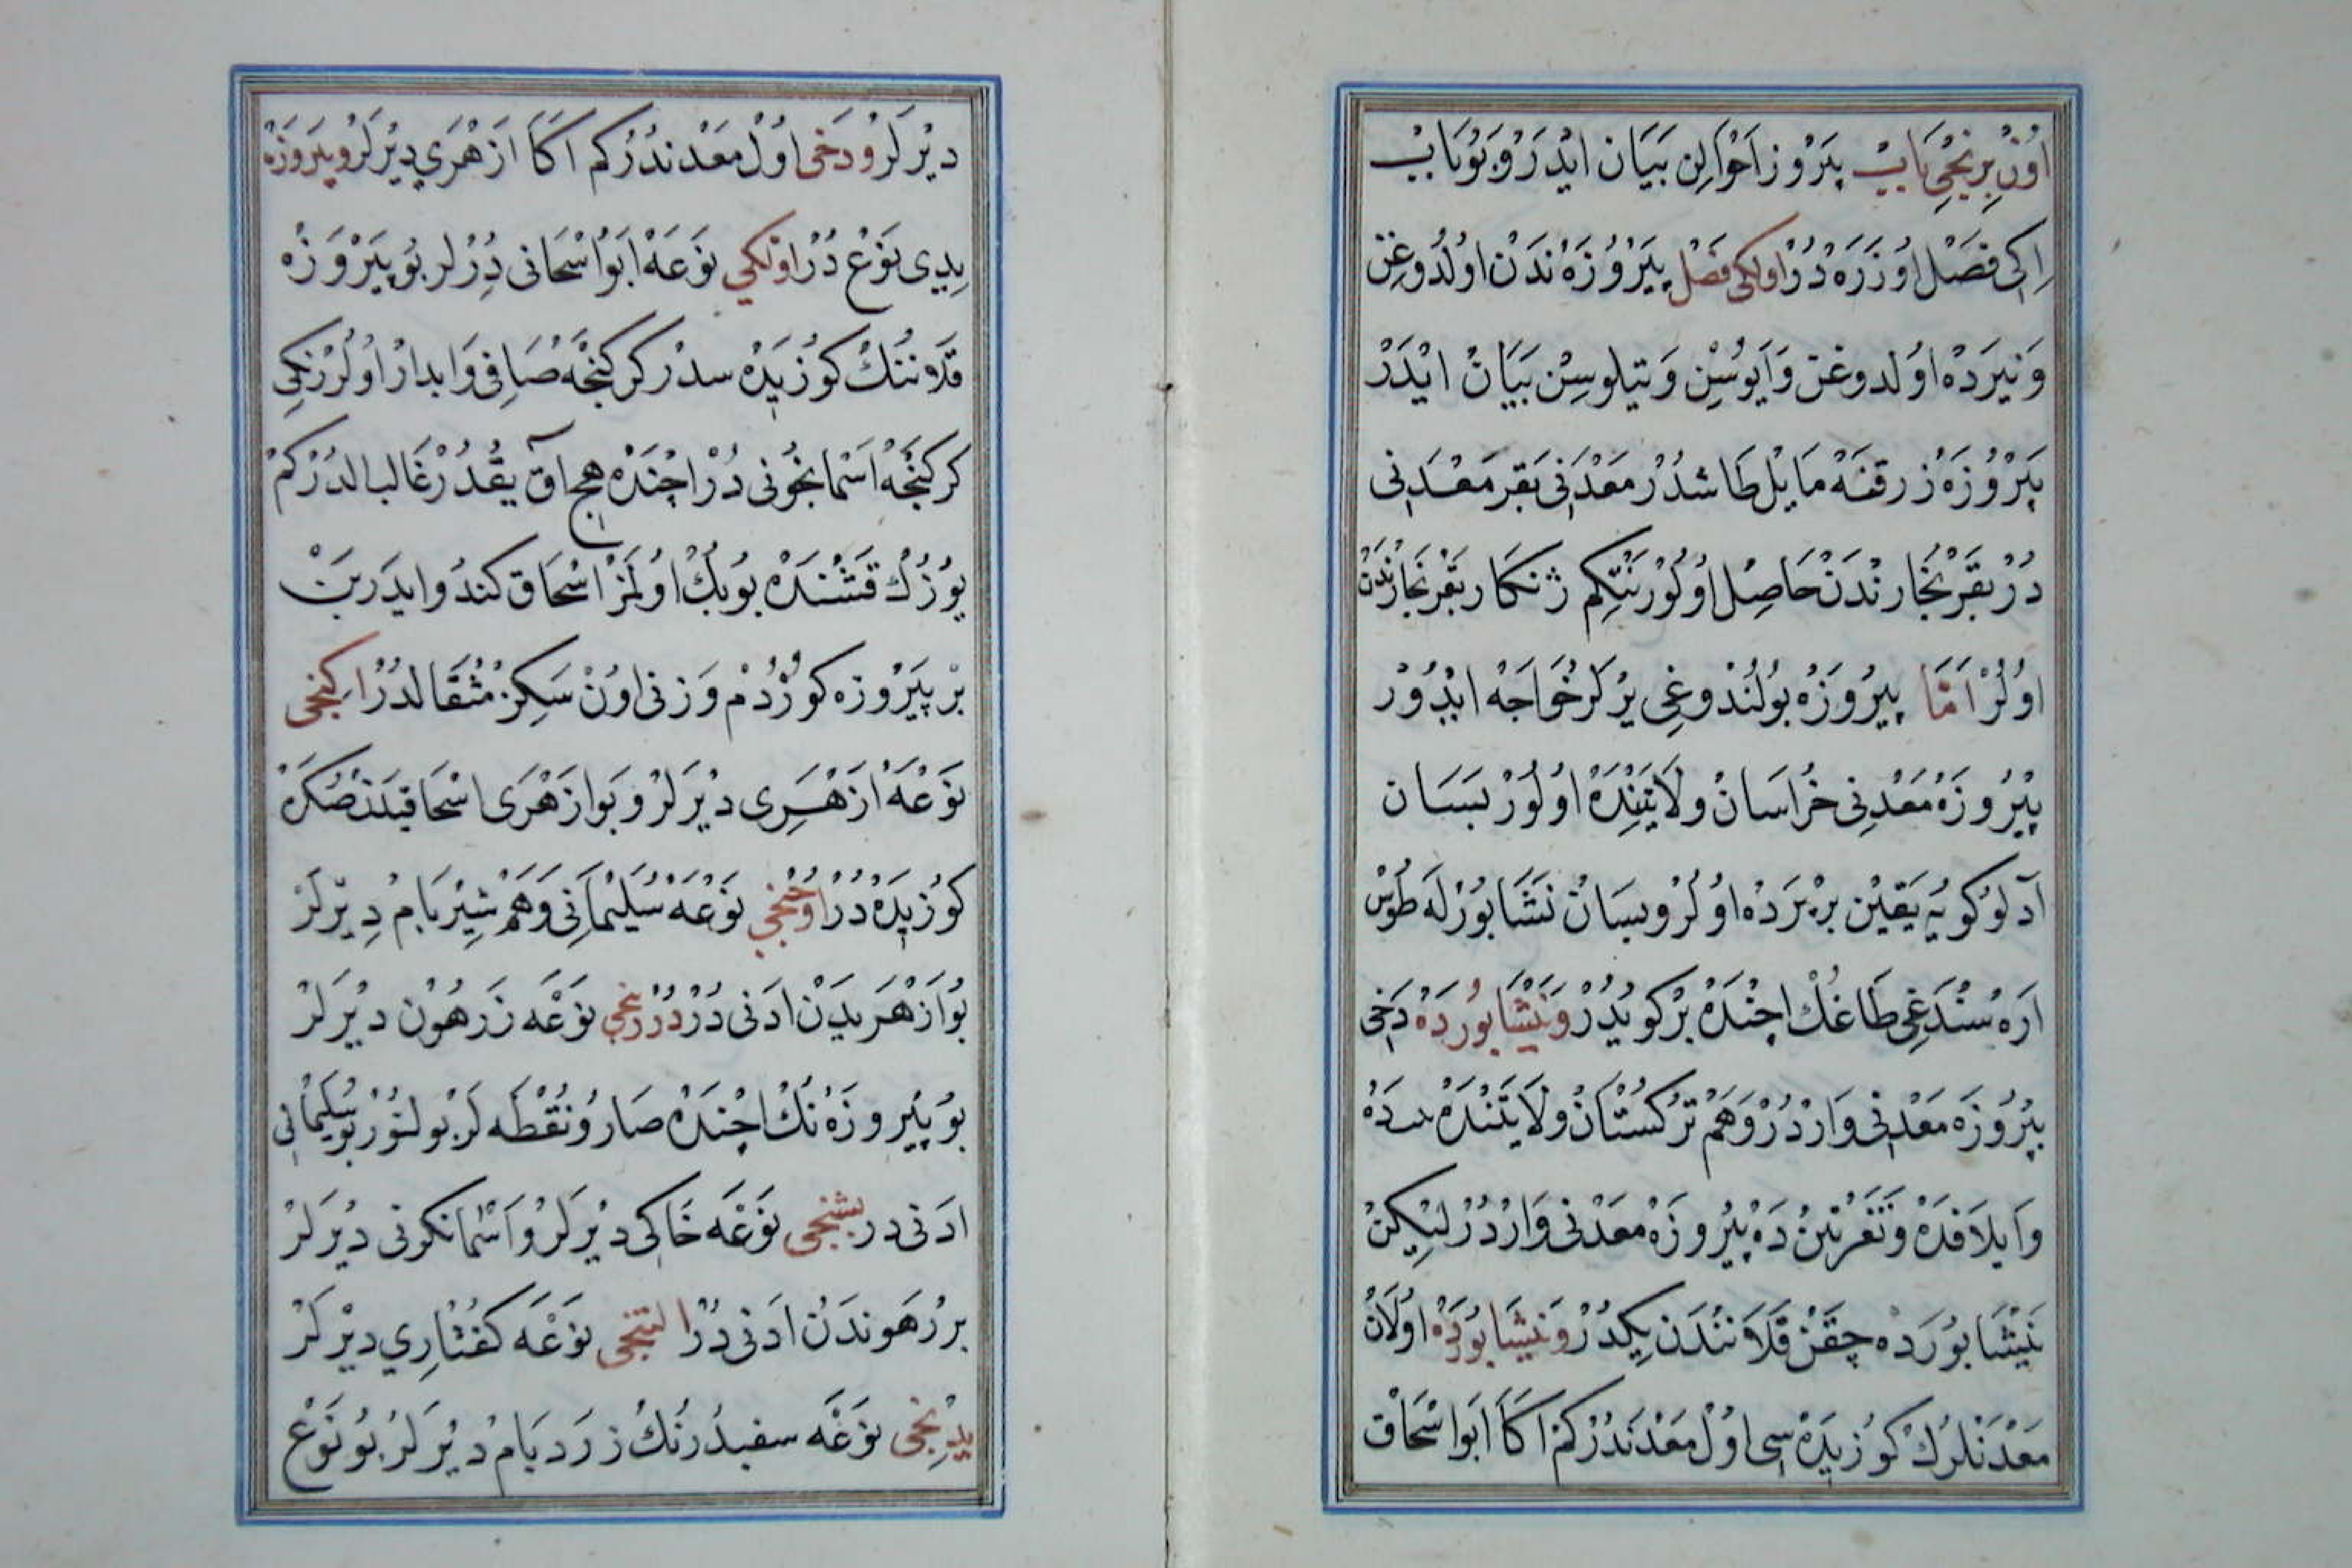 اون برنجی باب پیروز احوالن بیان ایدر و بو باب
اکی فصل اوزره در اولکی فصل پیروزه ندن اولدوغن
و نیرده اولدوغن و ایوسن و یتیلوسن بیان ایدر
پیروزه زرقته مایل طاشدر معدنی بقر معدنی
در بقر بخارندن حاصل اولور نتکم ژنکار بقر بخارندن
اولر اما پیروزه بولندوغی یرلر خواجه ایدور
پیروزه معدنی خراسان ولایتنده اولور بسان
آدلو کویه یقین بر یرده اولر و بسان نشابورله طوس
اره سنداغی طاغک اچنده بر کویدر و نیشابورده دخی
پیروزه معدنی واردر و هم ترکستان ولایتنده
و ایلاقده و ده پیروزه معدنی واردر لیکن
نیشابورده چقن قلاننندن یکدر و نیشابورده اولان
معدنلرک کوزیده سی اول معدندر کم اکا ابو اسحاق
دیرلر و دخی اول معدندر کم اکا ازهری دیرلر و پیروزه
یدی نوع در اولکی نوعه ابو اسحانی درلر بو پیروزه
قلاننک کوزیده سدر کرکنجه صافی و ابدار اولر رنکی
کرکنجه اسمانجونی در اچنده هیچ اق یقدر غالبا لدر کم
یوزک قشنده بویک اولمز اسحاق کندو ایدر بن
بر پیروزه کوردم وزنی اون سکز مثقالدر اکنجی
نوعه ازهری دیرلر و بو ازهری اسحاقیدن صکره
کوزیده در اوچنجی نوعه سلیمانی و هم شیربام دیرلر
بو ازهریدن ادنی در دردنجی نوعه زرهون دیرلر
بو پیروزه نک اچنده صارو نقطه لر بولنور بو سلیمانی
ادنی در بشنجی نوعه خاکی دیرلر و اسمانکونی دیرلر
بر زرهوندن ادنی در التنجی نوعه کفتاری دیرلر
یدنجی نوعه سفید رنک زرد بام دیرلر بو نوع